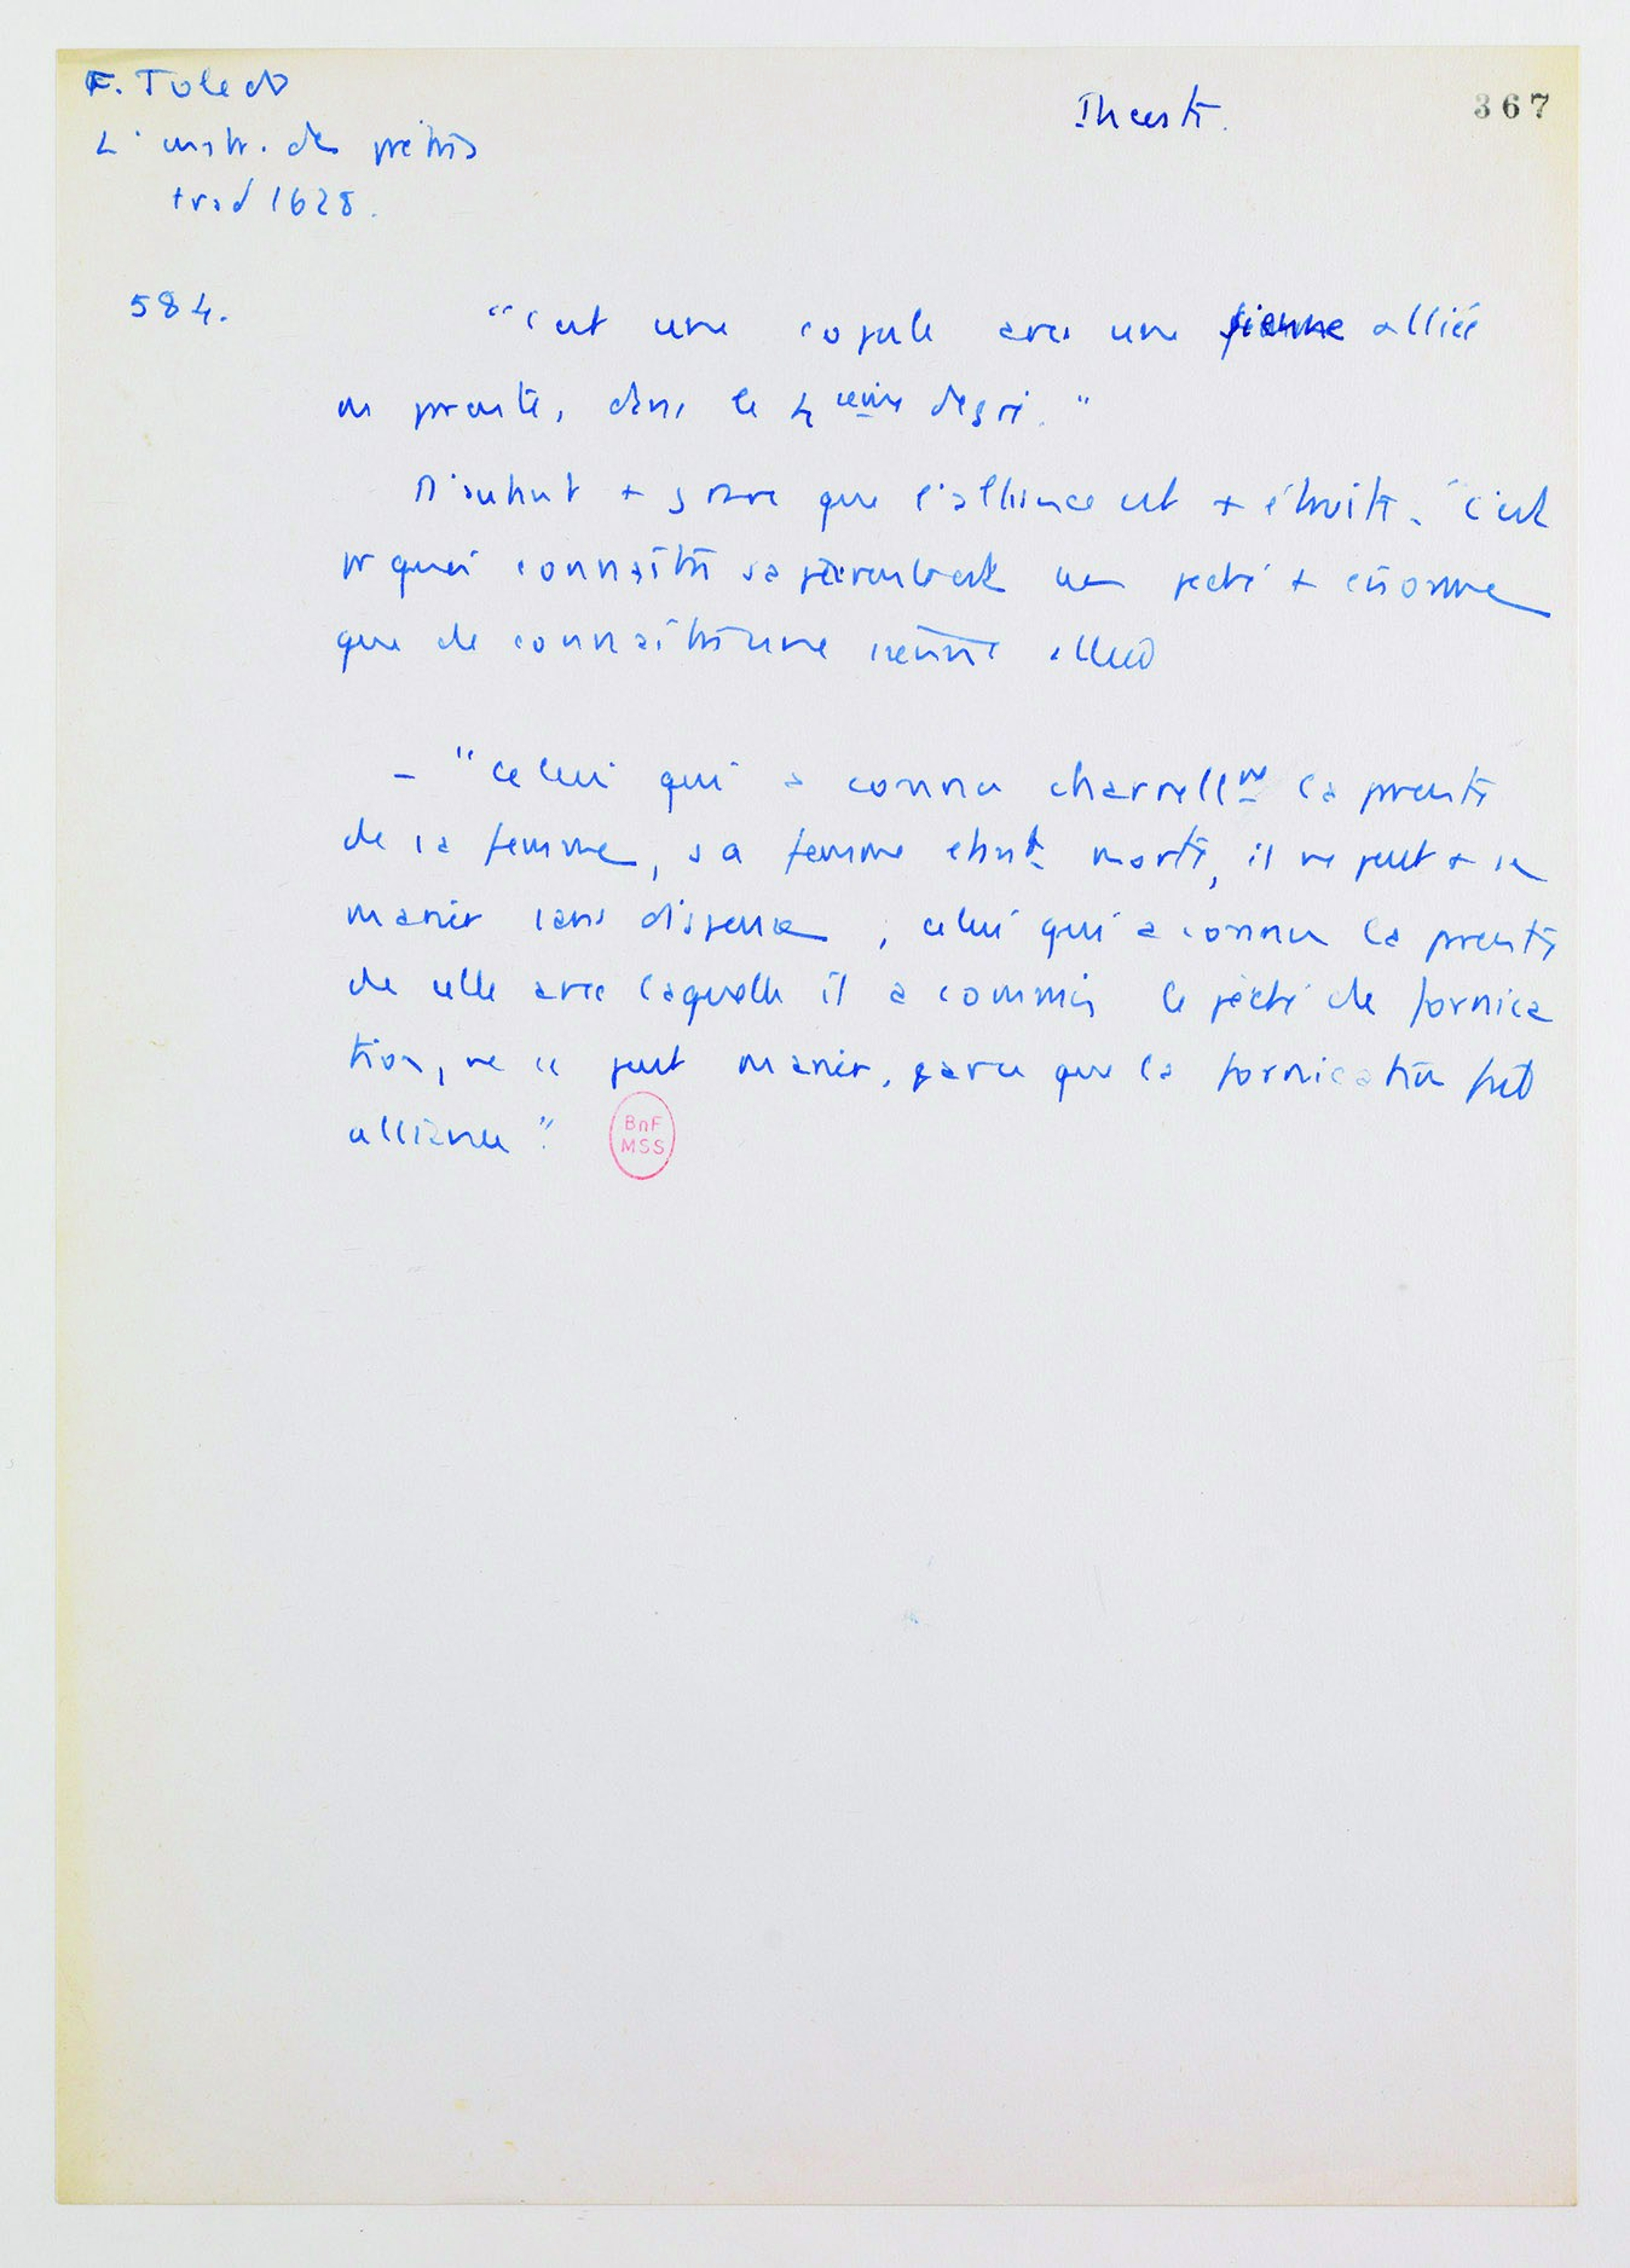 F. Toledo
L'instr. des prêtres
trad 1628.
Inceste.
367
584.
"C'est une copule avec une sienne alliée
ou parente, dans le 4 ieme degré."
D'autant + grave que l'alliance est + étroite. "C'est
pr quoi connaître sa parente est un péché + énorme
que de connaître une sienne alliée
- "Celui qui a connu charnellmt la parente
de sa femme, sa femme étant morte, il ne peut + se
marier sans dispense ; celui qui a connu la parente
de celle avec laquelle il a commis le péché de fornica
tion, ne se peut marier, parce que la fornication fait
alliance".
BnF
MSS